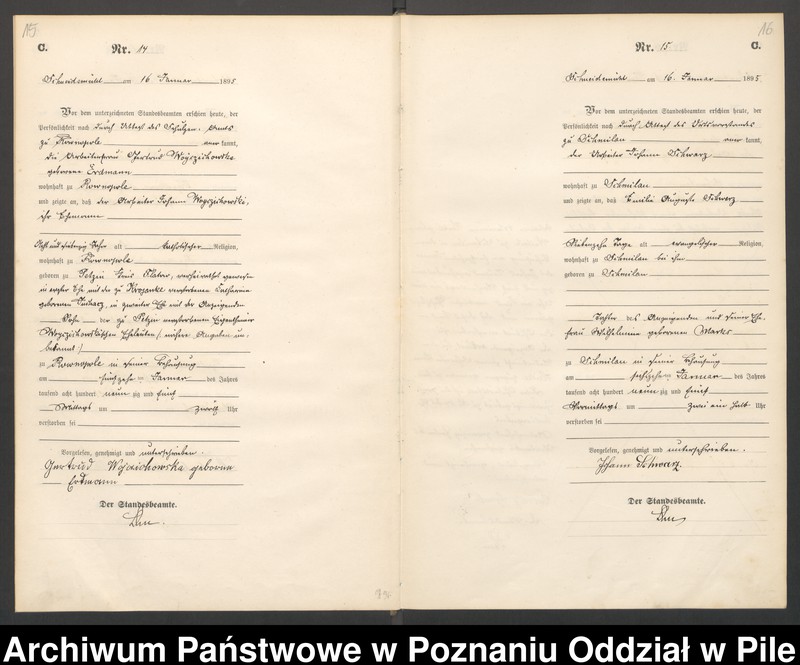 15
C.
Nr. 14
Schneidemühl am 16 Januar 1895
Vor dem unterzeichneten Standesbeamten erschien heute, der
Persönlichkeit nach durch Attest des Schulzen-Amts
zu kannt,
die Arbeiterfrau Gertrud
geborene Erdmann
wohnhaft zu
und zeigte an, daß der Arbeiter Johann
ihr Ehemann
alt katholischer Religion,
wohnhaft zu
geboren zu Kreis Flatow, verheirathet gewesen
in erster Ehe mit der zu verstorbenen Catharina
geborenen in zweiter Ehe mit der Anzeigenden
Sohn der zu verstorbenen Eigenthümer
Eheleuten / nähere Angaben un-
bekannt /
zu in seiner Behausung
am fünfzehn ten Januar des Jahres
tausend acht hundert neun zig und fünf
Mittags um zwölf Uhr
verstorben sei
Vorgelesen, genehmigt und unterschrieben.
Gertrud geborene
Erdmann
Der Standesbeamte.
16
Nr. 15
C.
Schneidemühl am 16. Januar 1895
Vor dem unterzeichneten Standesbeamten erschien heute, der
Persönlichkeit nach durch Attest des Ortsvorstandes
zu Schmilau kannt,
der Arbeiter Johann Schwarz
wohnhaft zu Schmilau
und zeigte an, daß Emilie Auguste Schwarz
Siebenzehn Tage alt evangelischer Religion,
wohnhaft zu Schmilau bei ihm
geboren zu Schmilau
Tochter des Anzeigenden und seiner Ehe-
frau Wilhelmine geborenen
zu Schmilau in seiner Behausung
am Januar des Jahres
tausend acht hundert neun zig und fünf
Vormittags um zwei ein halb Uhr
verstorben sei
Vorgelesen, genehmigt und unterschrieben.
Johann Schwarz
Der Standesbeamte.
Archiwum Państwowe w Poznaniu Oddział w Pile